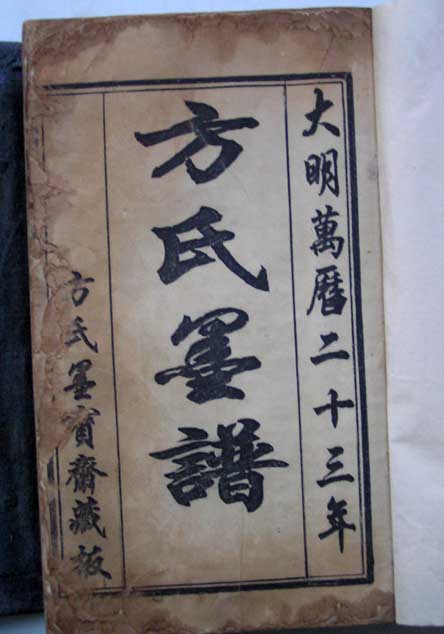 大明萬曆二十三年
方氏墨譜
方氏墨寶齋藏板